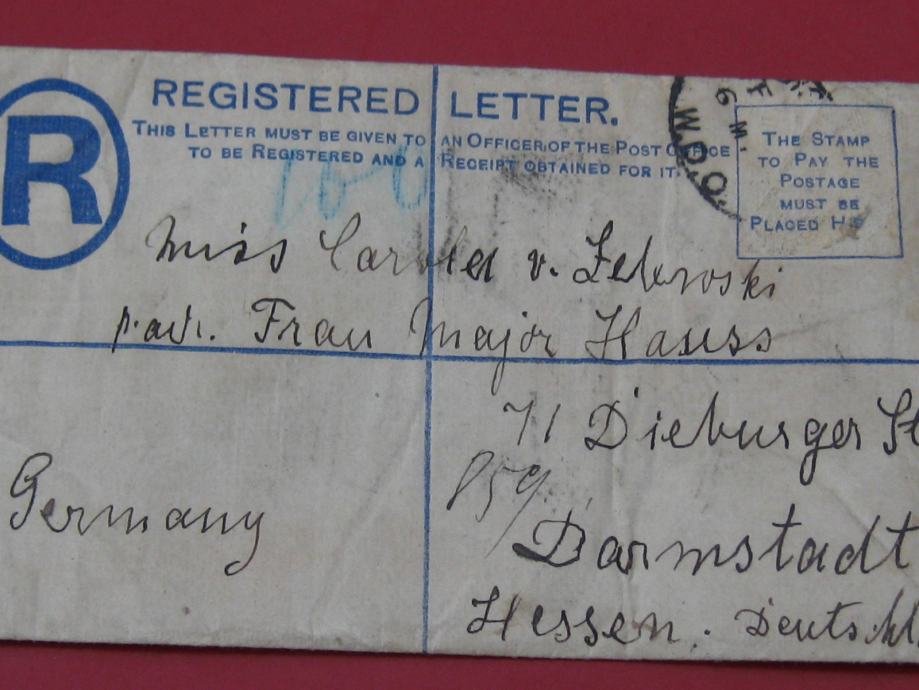 REGISTERED LETTER.
THIS LETTER MUST BE GIVEN TO AN OFFICER OF THE POST OFFICE
TO BE REGISTERED AND A RECEIPT OBTAINED FOR IT.
R
THE STAMP
TO PAY THE
POSTAGE
MUST BE
PLACED HERE
Miss Carola v. Zebrowski
p. adr. Frau Major Hauss
71 Dieburger St
859
Germany
Darmstadt
Hessen. Deutschl.